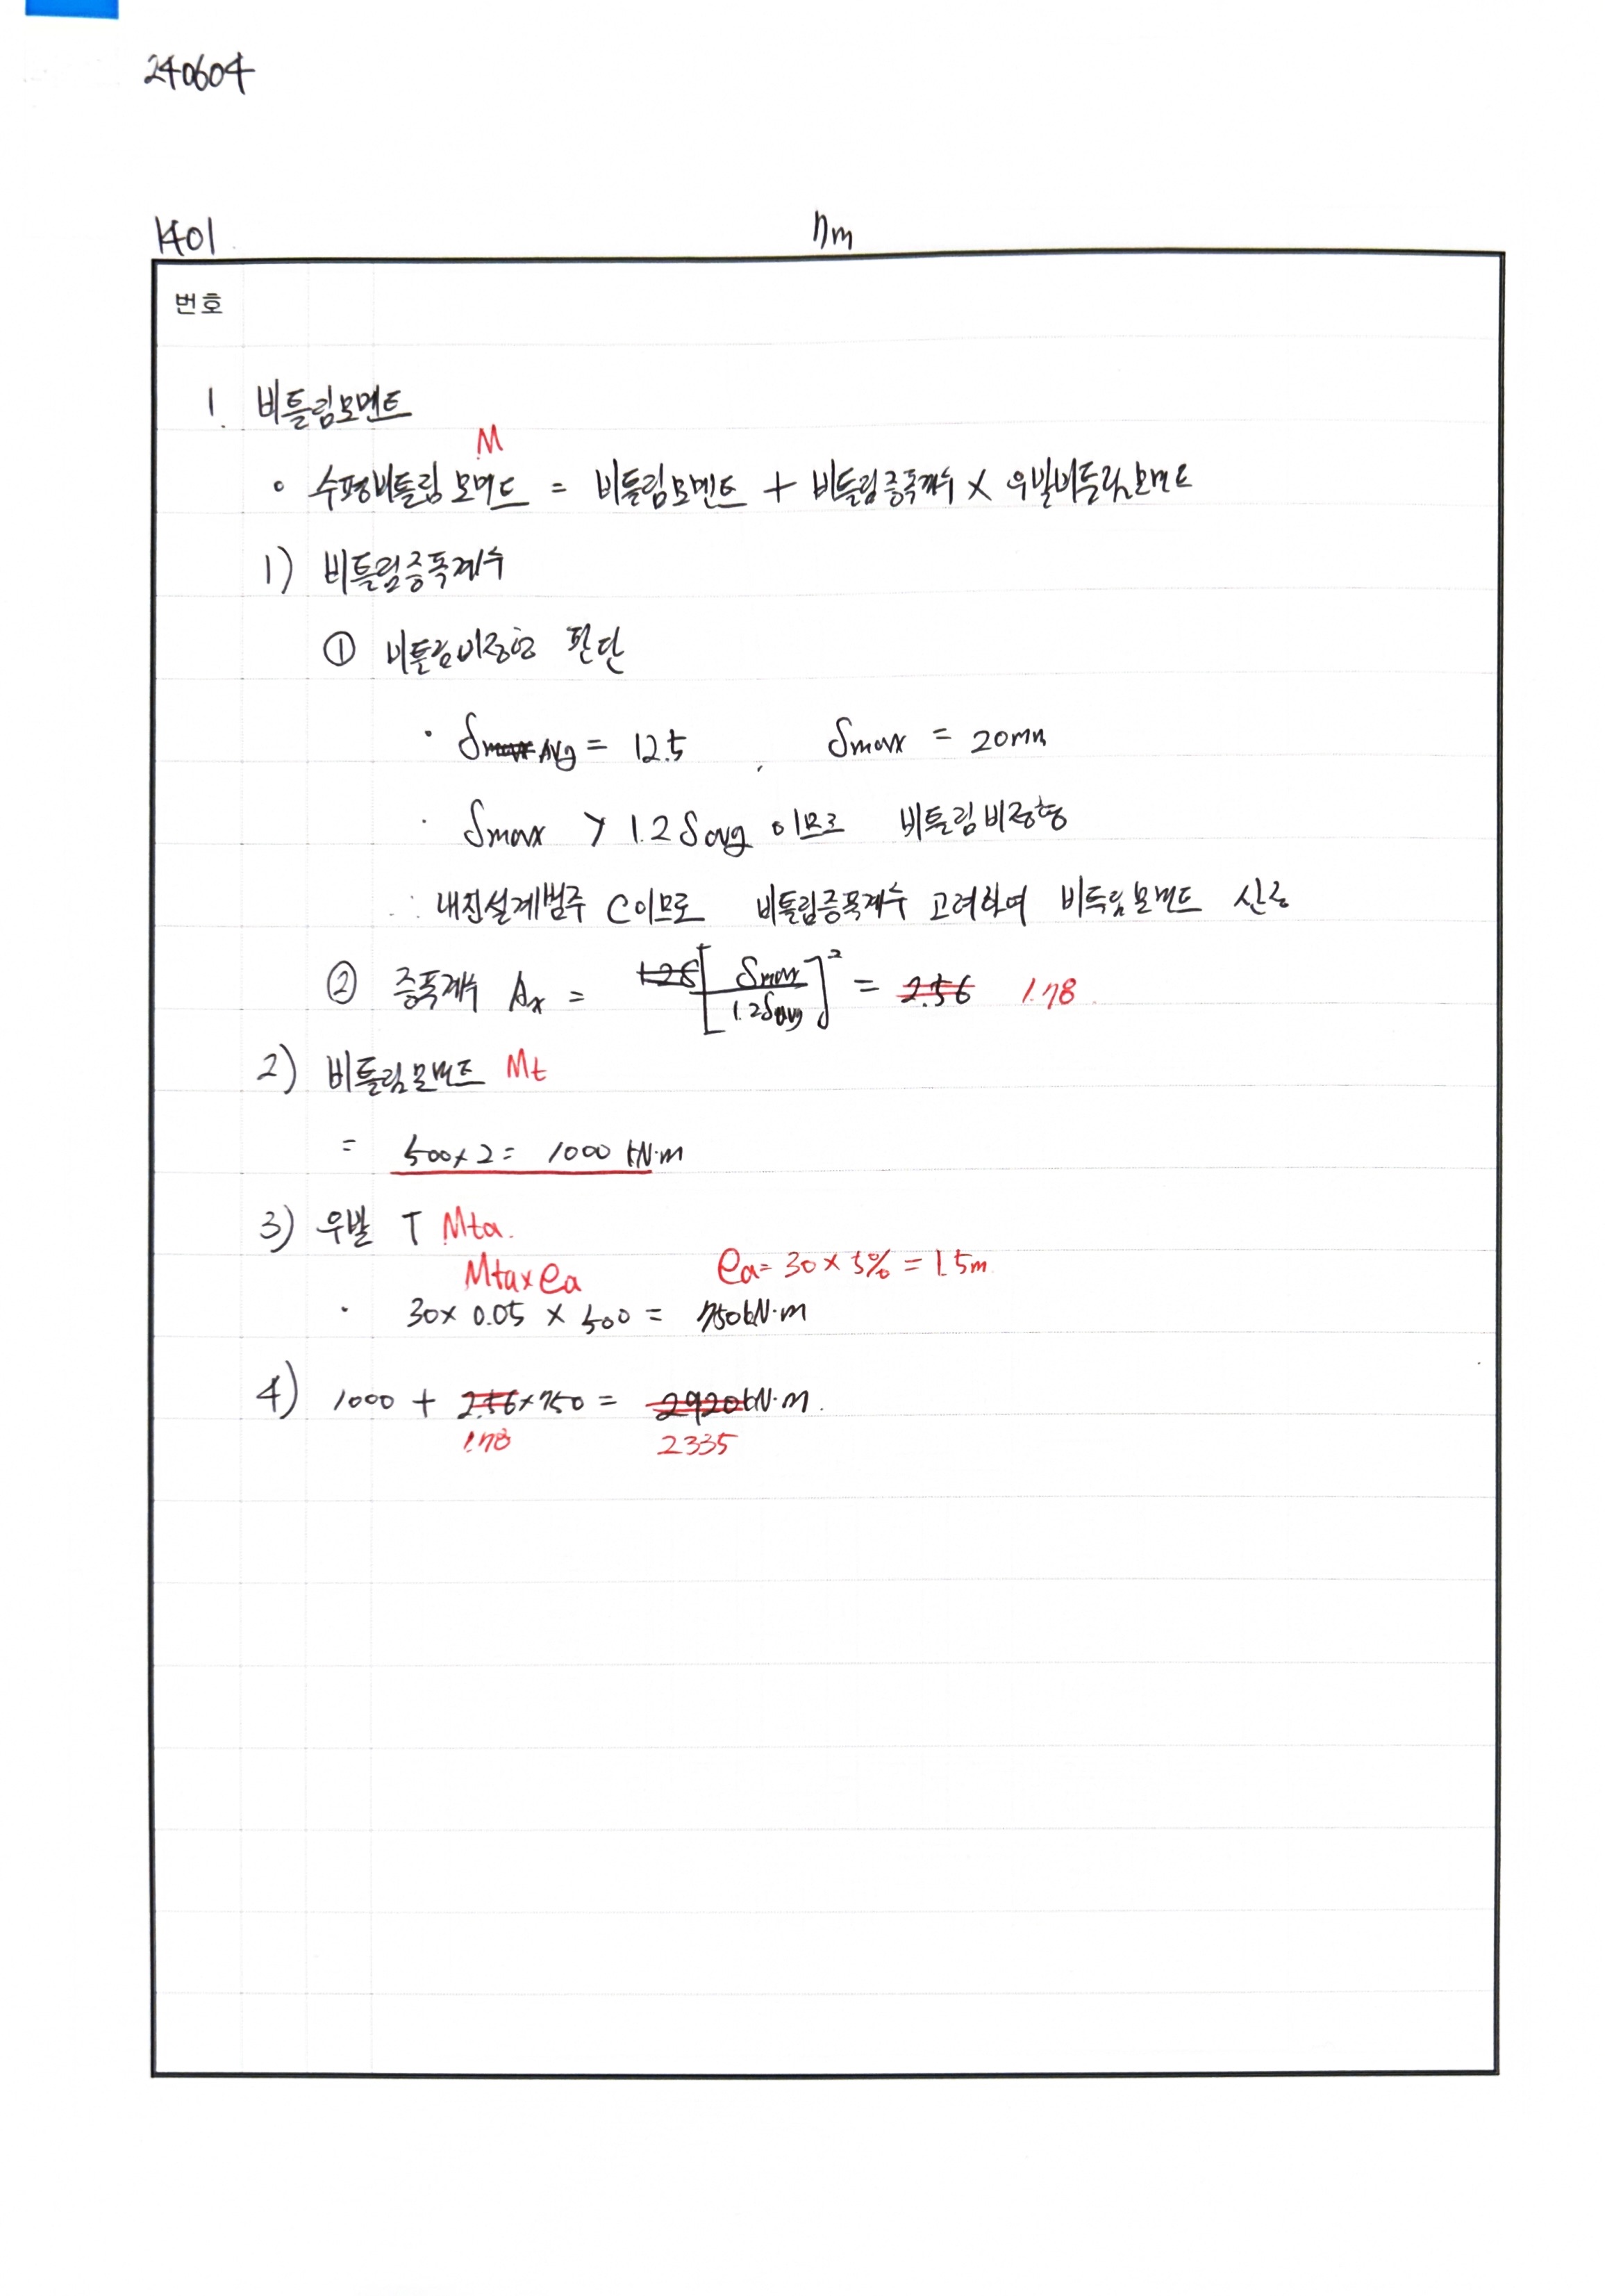 240604
1401 7m
번호
1. 비틀림모멘트
M
○ 수평비틀림모멘트 = 비틀림모멘트 + 비틀림증폭계수 × 우발비틀림모멘트
1) 비틀림증폭계수
① 비틀림비정형 판단
· δmax Avg = 12.5 , δmax = 20mm
· δmax > 1.2δavg 이므로 비틀림비정형
∴ 내진설계범주 C이므로 비틀림증폭계수 고려하여 비틀림모멘트 산정
② 증폭계수 Ax = 1.28 [δmax / 1.2δavg]² = 2.56 1.78
2) 비틀림모멘트 Mt
= 500×2 = 1000 kN·m
3) 우발 T Mta.
Mta×ea ea = 30 × 5% = 1.5m
· 30× 0.05 × 500 = 750kN·m
4) 1000 + 2.56×750 = 2920kN·m.
1.78 2335